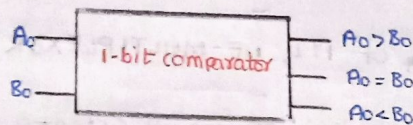 A0
B0
1-bit comparator
A0 > B0
A0 = B0
A0 < B0